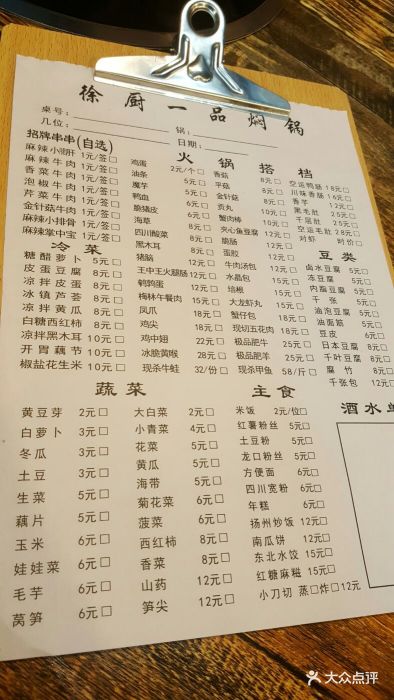 徐厨一品焖锅
桌号:
几位: 锅: 日期:
招牌串串(自选)
麻辣小郡肝 1元/签□
麻辣牛肉 1元/签□
香菜牛肉 1元/签□
泡椒牛肉 1元/签□
芹菜牛肉 1元/签□
金针菇牛肉 1元/签□
麻辣小排骨 1元/签□
麻辣掌中宝 1元/签□
冷菜
糖醋萝卜 5元□
皮蛋豆腐 8元□
凉拌皮蛋 8元□
冰镇芦荟 8元□
凉拌黄瓜 8元□
白糖西红柿 8元□
凉拌黑木耳 10元□
开胃藕节 10元□
椒盐花生米 10元□
火锅搭档
鸡蛋 2元/个□
油条
魔芋 5元□
鸭血
脆猪皮
海草
四川酸菜
黑木耳
猪脑 12元□
王中王火腿肠
鹌鹑蛋
梅林午餐肉 15元□
凤爪 18元□
鸡尖 18元□
鸡中翅 22元□
冰脆黄喉 28元□
现杀牛蛙 32/份□
香菇 8元□
平菇 8元□
金针菇
贡丸
蟹肉棒
夹心鱼豆腐
脆肠
蛋胶
牛肉汤包
水晶包
培根
大龙虾丸
蟹仔包
现切五花肉 18元□
极品肥牛
极品肥羊
现杀甲鱼 58/斤□
空运鸭肠 18元□
川味香肠 16元□
香芋 12元□
黑毛肚
千层肚
空运毛肚 28元□
对虾 时价□
豆类
卤水豆腐 5元□
冻豆腐 5元□
内脂豆腐 5元□
千张
油泡豆腐
油面筋
豆皮
日本豆腐 8元□
千叶豆腐 8元□
腐竹 8元□
千张包 12元□
蔬菜
黄豆芽 2元□
白萝卜 3元□
冬瓜 3元□
土豆 3元□
生菜 5元□
藕片 5元□
玉米 6元□
娃娃菜 6元□
毛芋 6元□
莴笋 6元□
大白菜 2元□
小青菜 4元□
花菜 5元□
黄瓜 5元□
海带 5元□
菊花菜 6元□
菠菜 6元□
西红柿 8元□
香菜 8元□
山药 12元□
笋尖 12元□
主食
米饭 2元/位□
红薯粉丝 5元□
土豆粉 5元□
龙口粉丝 5元□
方便面 6元□
四川宽粉 6元□
年糕 6元□
扬州炒饭 12元□
南瓜饼 12元□
东北水饺 15元□
红糖麻糍 15元□
小刀切 蒸□炸□12元
酒水单
大众点评